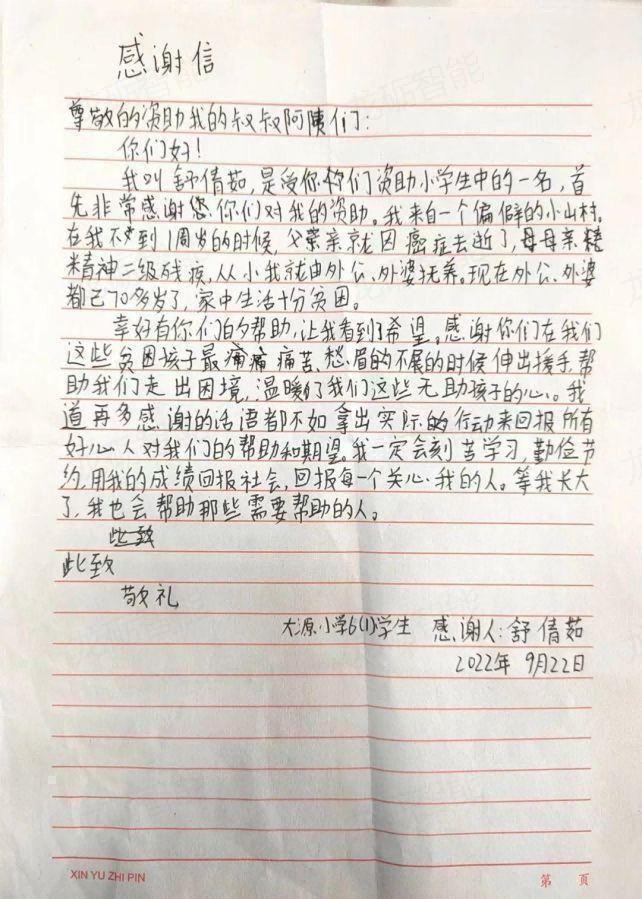 感谢信
尊敬的资助我的叔叔阿姨们：
你们好！
我叫舒倩茹，是受你你们资助小学生中的一名，首
先非常感谢您你们对我的资助。我来自一个偏僻的小山村。
在我不到1周岁的时候，父亲就因癌症去逝了，母亲精
精神二级残疾，从小我就由外公、外婆抚养。现在外公、外婆
都已70多岁了，家中生活十分贫困。
幸好有你们的帮助，让我看到了希望。感谢你们在我们
这些贫困孩子最痛苦、愁眉的不展的时候伸出援手，帮
助我们走出困境，温暖了我们这些无助孩子的心。我
道再多感谢的话语都不如拿出实际的行动来回报所有
好心人对我们的帮助和期望。我一定会刻苦学习，勤俭节
约，用我的成绩回报社会，回报每一个关心我的人。等我长大
了，我也会帮助那些需要帮助的人。
此致
此致
敬礼
大源小学6(1)学生 感谢人：舒倩茹
2022年 9月22日
XIN YU ZHI PIN
第 页